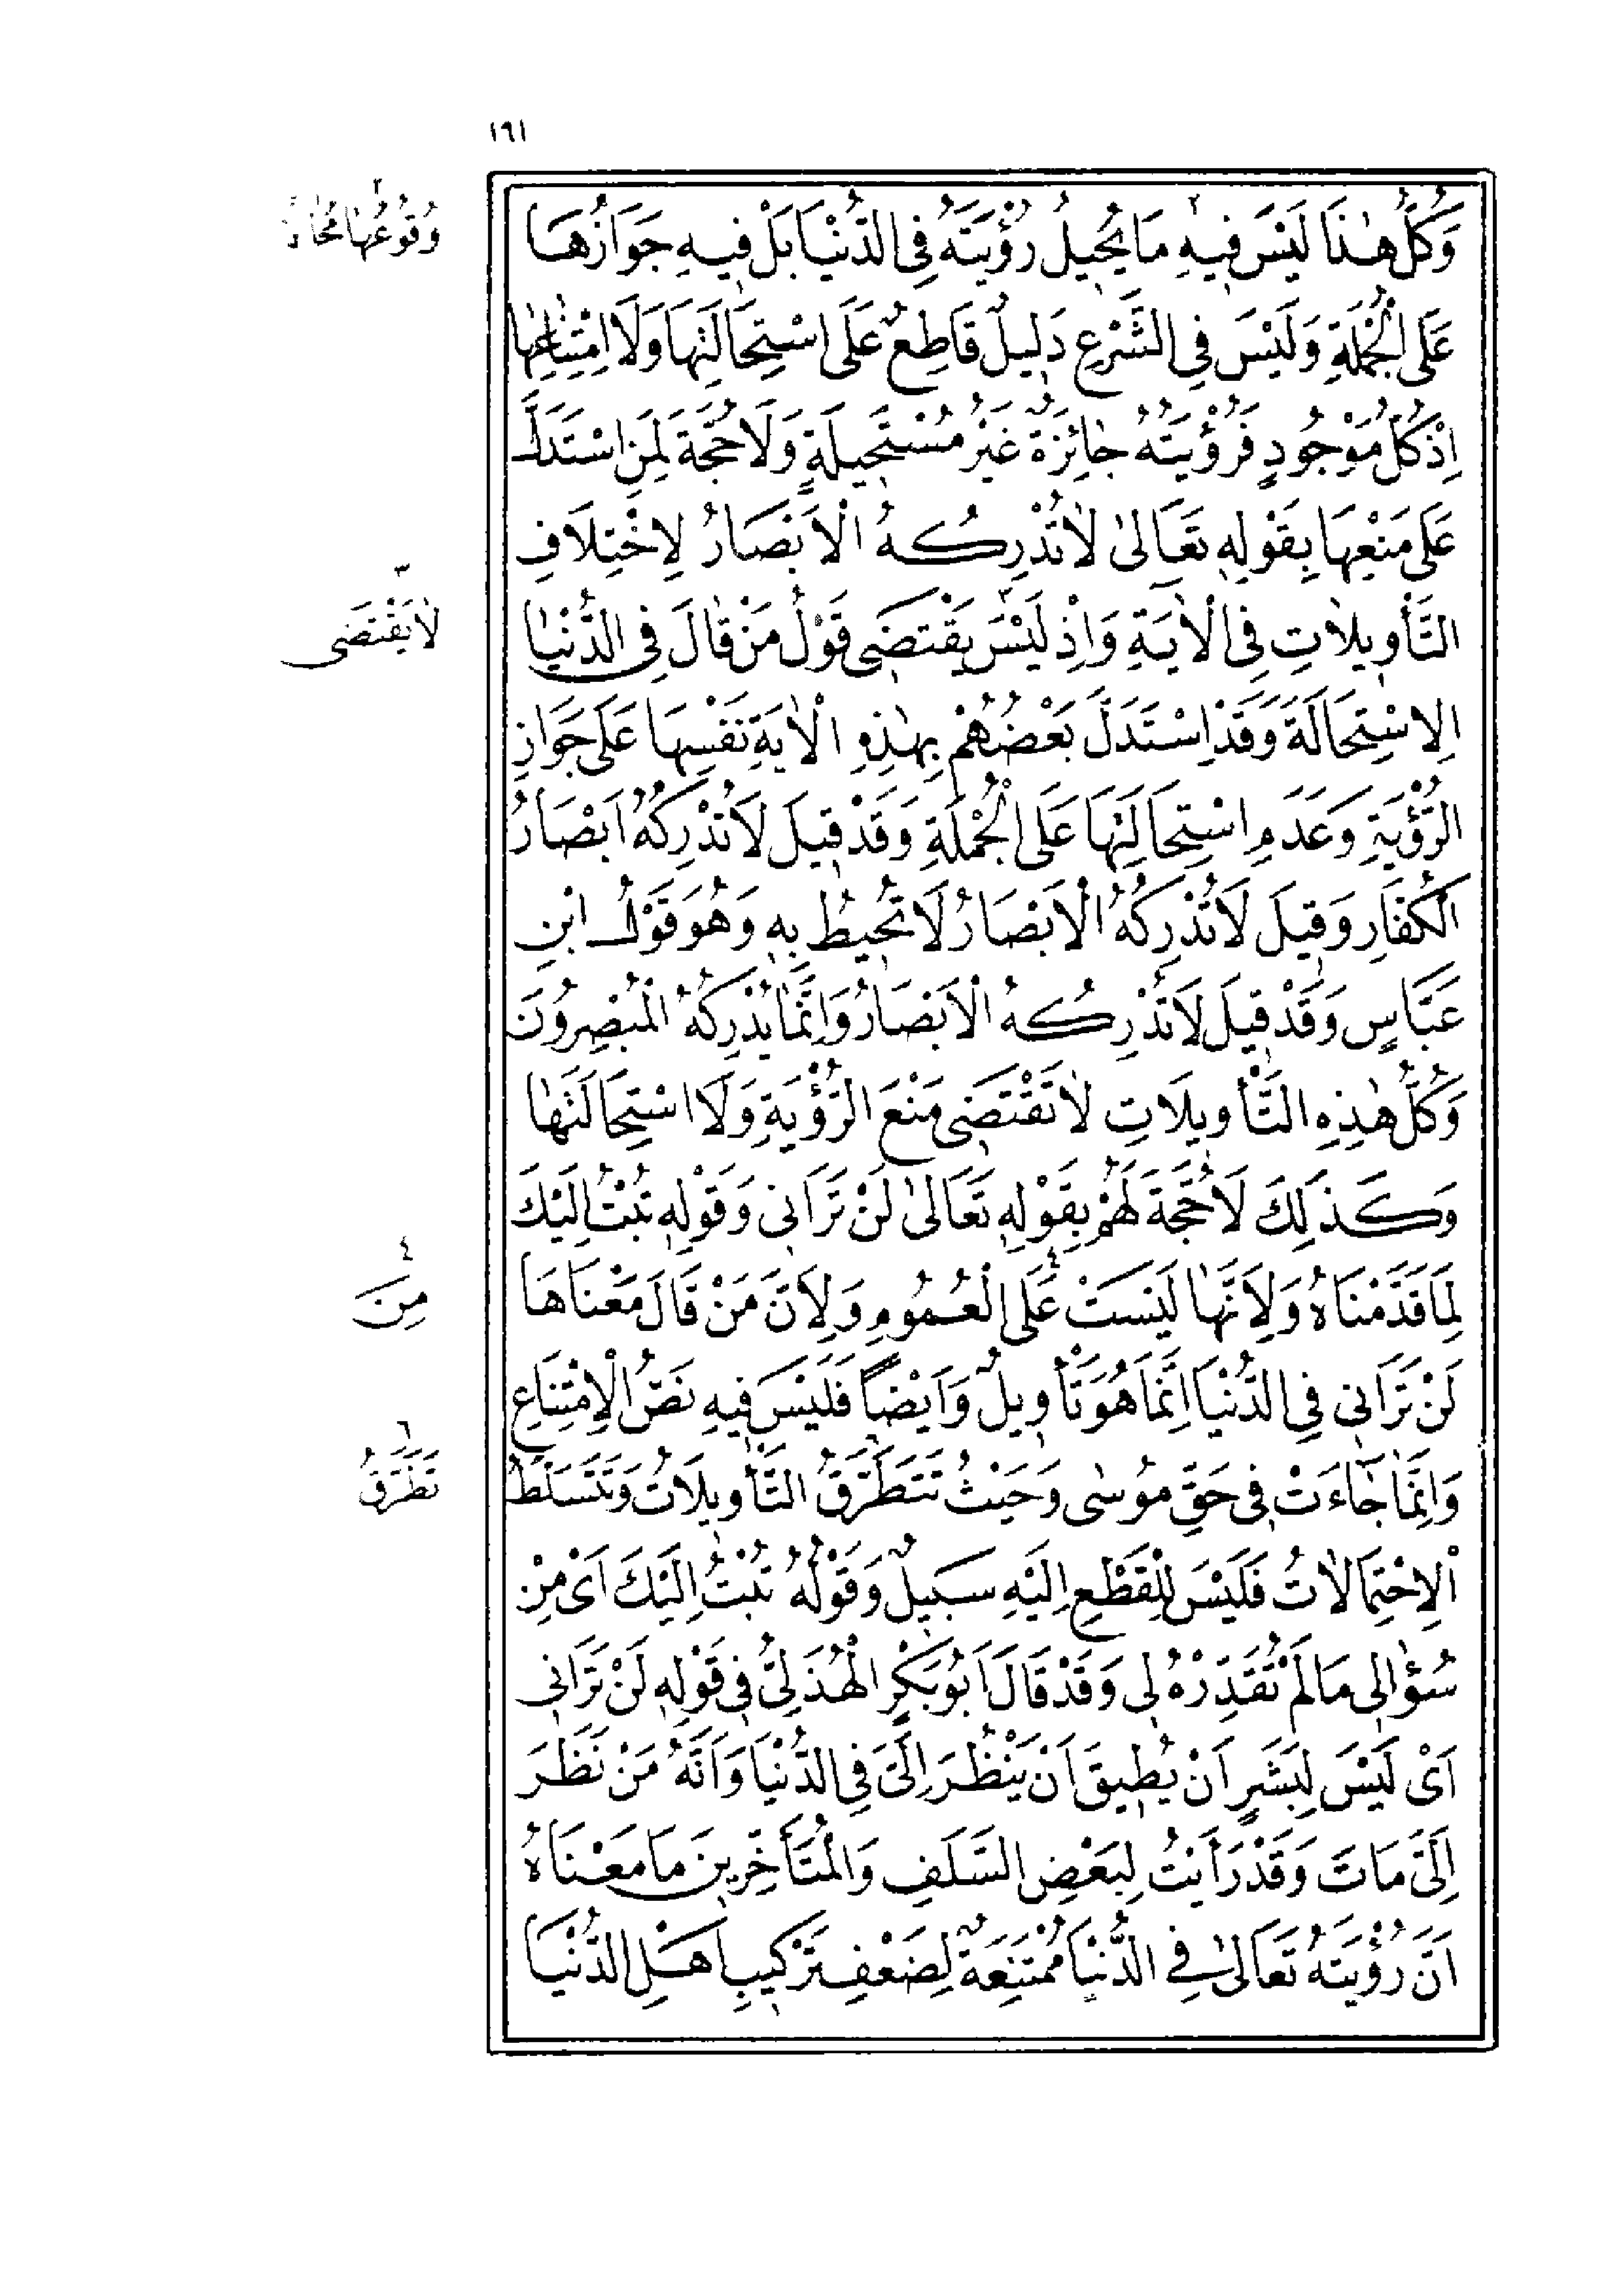 ١٦١
وَكُلُّ هٰذَا لَيْسَ فِيهِ مَا يُحِيلُ رُؤْيَتَهُ فِى الدُّنْيَا بَلْ فِيهِ جَوَازُهَا
عَلَى الْجُمْلَةِ وَلَيْسَ فِى الشَّرْعِ دَلِيلٌ قَاطِعٌ عَلَى اسْتِحَالَتِهَا وَلَا امْتِنَاعِهَا
اِذْ كُلُّ مَوْجُودٍ فَرُؤْيَتُهُ جَائِزَةٌ غَيْرُ مُسْتَحِيلَةٍ وَلَا حُجَّةَ لِمَنِ اسْتَدَلَّ
عَلَى مَنْعِهَا بِقَوْلِهِ تَعَالىٰ لَا تُدْرِكُهُ الْاَبْصَارُ لِاخْتِلَافِ
التَّأْوِيلَاتِ فِى الْاٰيَةِ وَاِذْ لَيْسَ يَقْتَضِى قَوْلُ مَنْ قَالَ فِى الدُّنْيَا
الِاسْتِحَالَةَ وَقَدِ اسْتَدَلَّ بَعْضُهُمْ بِهٰذِهِ الْاٰيَةِ نَفْسِهَا عَلَى جَوَازِ
الرُّؤْيَةِ وَعَدَمِ اسْتِحَالَتِهَا عَلَى الْجُمْلَةِ وَقَدْ قِيلَ لَا تُدْرِكُهُ اَبْصَارُ
الْكُفَّارِ وَقِيلَ لَا تُدْرِكُهُ الْاَبْصَارُ لَا تُحِيطُ بِهِ وَهُوَ قَوْلُ ابْنِ
عَبَّاسٍ وَقَدْ قِيلَ لَا تُدْرِكُهُ الْاَبْصَارُ وَاِنَّمَا يُدْرِكُهُ الْمُبْصِرُونَ
وَكُلُّ هٰذِهِ التَّأْوِيلَاتِ لَا تَقْتَضِى مَنْعَ الرُّؤْيَةِ وَلَا اسْتِحَالَتَهَا
وَكَذٰلِكَ لَا حُجَّةَ لَهُمْ بِقَوْلِهِ تَعَالىٰ لَنْ تَرَانِى وَقَوْلِهِ تُبْتُ اِلَيْكَ
لِمَا قَدَّمْنَاهُ وَلِاَنَّهَا لَيْسَتْ عَلَى الْعُمُومِ وَلِاَنَّ مَنْ قَالَ مَعْنَاهَا
لَنْ تَرَانِى فِى الدُّنْيَا اِنَّمَا هُوَ تَأْوِيلٌ وَاَيْضاً فَلَيْسَ فِيهِ نَصُّ الْاِمْتِنَاعِ
وَاِنَّمَا جَاءَتْ فِى حَقِّ مُوسٰى وَحَيْثُ تَتَطَرَّقُ التَّأْوِيلَاتُ وَتَتَسَلَّطُ
الْاِحْتِمَالَاتُ فَلَيْسَ لِلْقَطْعِ اِلَيْهِ سَبِيلٌ وَقَوْلُهُ تُبْتُ اِلَيْكَ اَىْ مِنْ
سُؤَالِى مَا لَمْ تُقَدِّرْهُ لِى وَقَدْ قَالَ اَبُو بَكْرٍ الْهُذَلِىُّ فِى قَوْلِهِ لَنْ تَرَانِى
اَىْ لَيْسَ لِبَشَرٍ اَنْ يُطِيقَ اَنْ يَنْظُرَ اِلَىَّ فِى الدُّنْيَا وَاَنَّهُ مَنْ نَظَرَ
اِلَىَّ مَاتَ وَقَدْ رَاَيْتُ لِبَعْضِ السَّلَفِ وَالْمُتَأَخِّرِينَ مَا مَعْنَاهُ
اَنَّ رُؤْيَتَهُ تَعَالىٰ فِى الدُّنْيَا مُمْتَنِعَةٌ لِضَعْفِ تَرْكِيبِ اَهْلِ الدُّنْيَا
٢
وُقُوعُهَا
٣
لَا يَقْتَضِى
٤
مِنَ
٦
تَطَرَّقُ